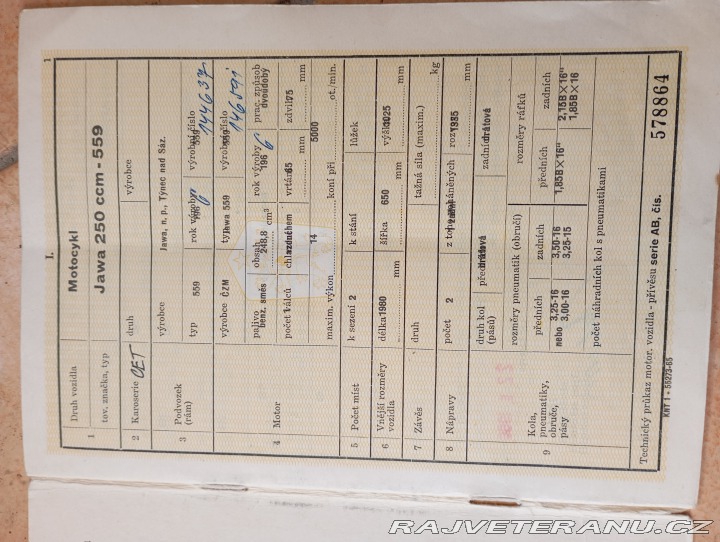 I.
1
1 Druh vozidla Motocykl
tov. značka, typ Jawa 250 ccm - 559
2 Karoserie OET druh výrobce
3 Podvozek (rám) výrobce Jawa, n. p., Týnec nad Sáz.
typ 559 rok výroby 196 výrobní číslo 559 144637
4 Motor výrobce ČZM typ Jawa 559 výrobní číslo 559 146591
palivo benz. směs obsah 248,8 cm³ rok výroby 1966 prac. způsob dvoudobý
počet válců 1 chlazení vzduchem vrtání 65 mm zdvih 75 mm
maxim. výkon 14 koní při 5000 ot./min.
5 Počet míst k sezení 2 k stání lůžek
6 Vnější rozměry vozidla délka 1980 mm šířka 650 mm výška 1025 mm
7 Závěs druh tažná síla (maxim.) kg
8 Nápravy počet 2 z toho poháněných rozvor 1335 mm
9 Kola, pneumatiky, obruče, pásy
druh kol (pásů) předních drátová zadních drátová
rozměry pneumatik (obručí) rozměry ráfků
předních zadních předních zadních
3,25-16 3,50-16 1,85B×16" 2,15B×16"
nebo 3,00-16 3,25-15 1,85B×16
počet náhradních kol s pneumatikami
Technický průkaz motor. vozidla - přívěsu serie AB, čís. 578864
KNT I - 55273-65
RAJVETERANU.CZ